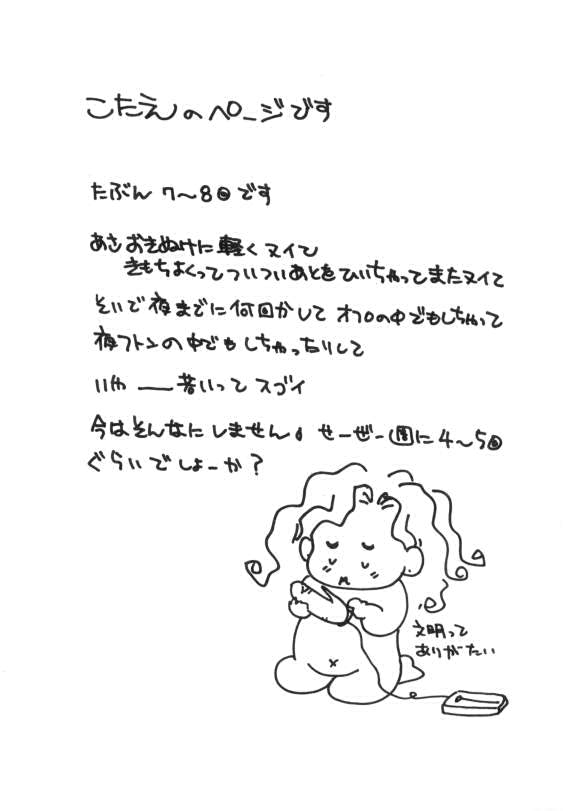 こたえのページです
たぶん 7〜8回です
あさおきぬけに軽くヌイて
きもちよくってついついあとをひいちゃってまたヌイて
そいで夜までに何回かして オフロの中でもしちゃって
夜フトンの中でもしちゃったりして
いやー昔いってスゴイ
今はそんなにしません。せーぜー週に4〜5回
ぐらいでしょーか?
文明って
ありがたい